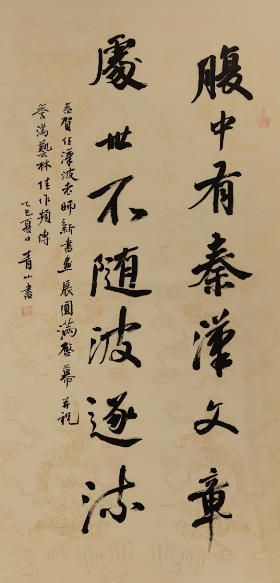 腹中有秦漢文章
處世不随波逐流
恭賀任漢波老師新書画展圓滿啓幕并祝
譽满藝林佳作頻傳
乙巳夏日青山書